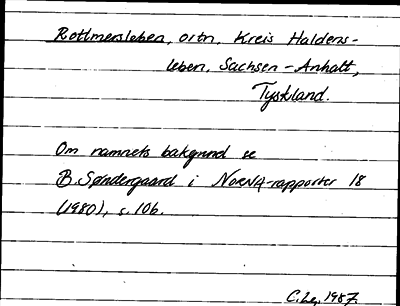 Rottmersleben, ortn. Kreis Haldens-
leben, Sachsen-Anhalt,
Tyskland.
Om namnets bakgrund se
B. Søndergaard i NORNA-rapporter 18
(1980), s. 106.
C. Le, 1987.